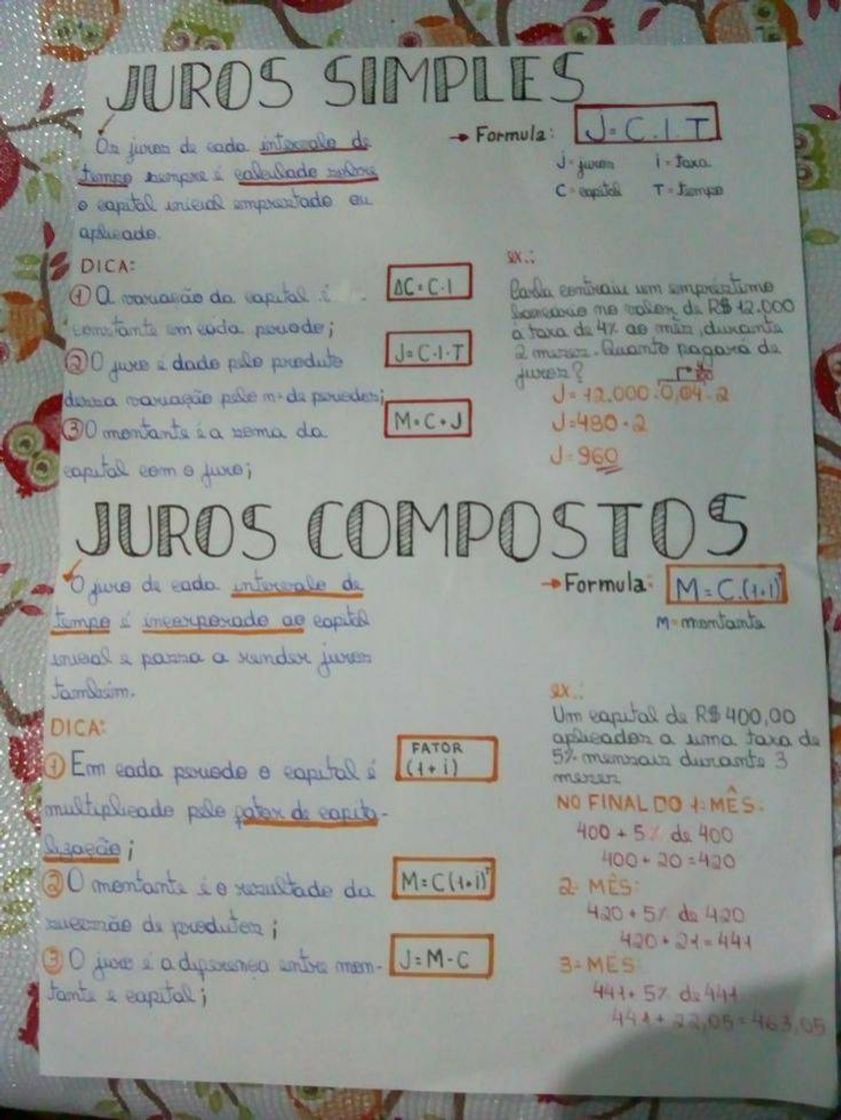 JUROS SIMPLES
Os juros de cada intervalo de
tempo sempre é calculado sobre
o capital inicial emprestado ou
aplicado.
→ Formula: J = C . I . T
J = juros I = taxa
C = capital T = tempo
DICA:
① A variação da capital é
constante em cada periodo;
ΔC = C · I
② O juro é dado pelo produto
dessa variação pelo nº de periodos;
J = C · I · T
③ O montante é a soma da
capital com o juro;
M = C + J
ex.:
Carla contraiu um empréstimo
bancário no valor de R$ 12.000
à taxa de 4% ao mês, durante
2 meses. Quanto pagará de
juros?
J = 12.000 . 0,04 . 2
J = 480 . 2
J = 960
JUROS COMPOSTOS
O juro de cada intervalo de
tempo é incorporado ao capital
inicial e passa a render juros
também.
→ Formula: M = C.(1+i)ᵀ
M = montante
DICA:
① Em cada periodo o capital é
multiplicado pelo fator de capita-
lização;
FATOR
(1 + i)
② O montante é o resultado da
sucessão de produtos;
M = C(1+i)ᵀ
③ O juro é a diferença entre mon-
tante e capital;
J = M - C
ex.:
Um capital de R$ 400,00
aplicados a uma taxa de
5% mensais durante 3
meses
NO FINAL DO 1º MÊS:
400 + 5% de 400
400 + 20 = 420
2º MÊS:
420 + 5% de 420
420 + 21 = 441
3º MÊS:
441 + 5% de 441
441 + 22,05 = 463,05